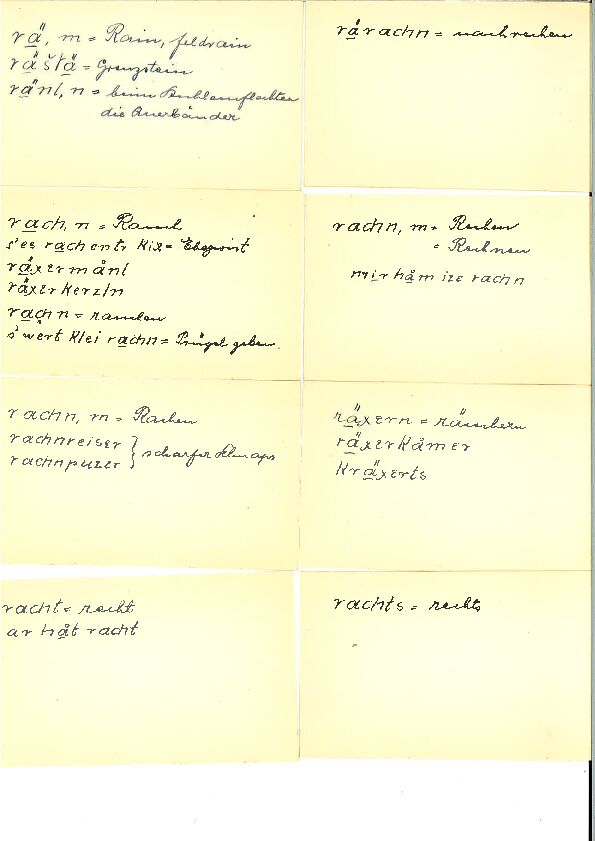 rä̱, m = Rain, feldrain
rä̱štä̱ = Grenzstein
rä̱nl, n = beim Stuhlanflechten
die Querbänder
rårachn = nachrechen
ra̱ch, n = Rauch
s'es ra̱ch ents Kix =
rä̱xermånl
rä̱xerkerzln
ra̱chn = rauchen
s'wert klei ra̱chn = Prügel geben.
rachn, m = Rechen
= Rechnen
mir håm ize rachn
rachn, m = Rachen
rachnreiser
rachnpuzer } scharfer Schnaps
rä̱xern = räuchern
rä̱xerkåmer
krä̱xerts
racht = recht
ar håt racht
rachts = rechts